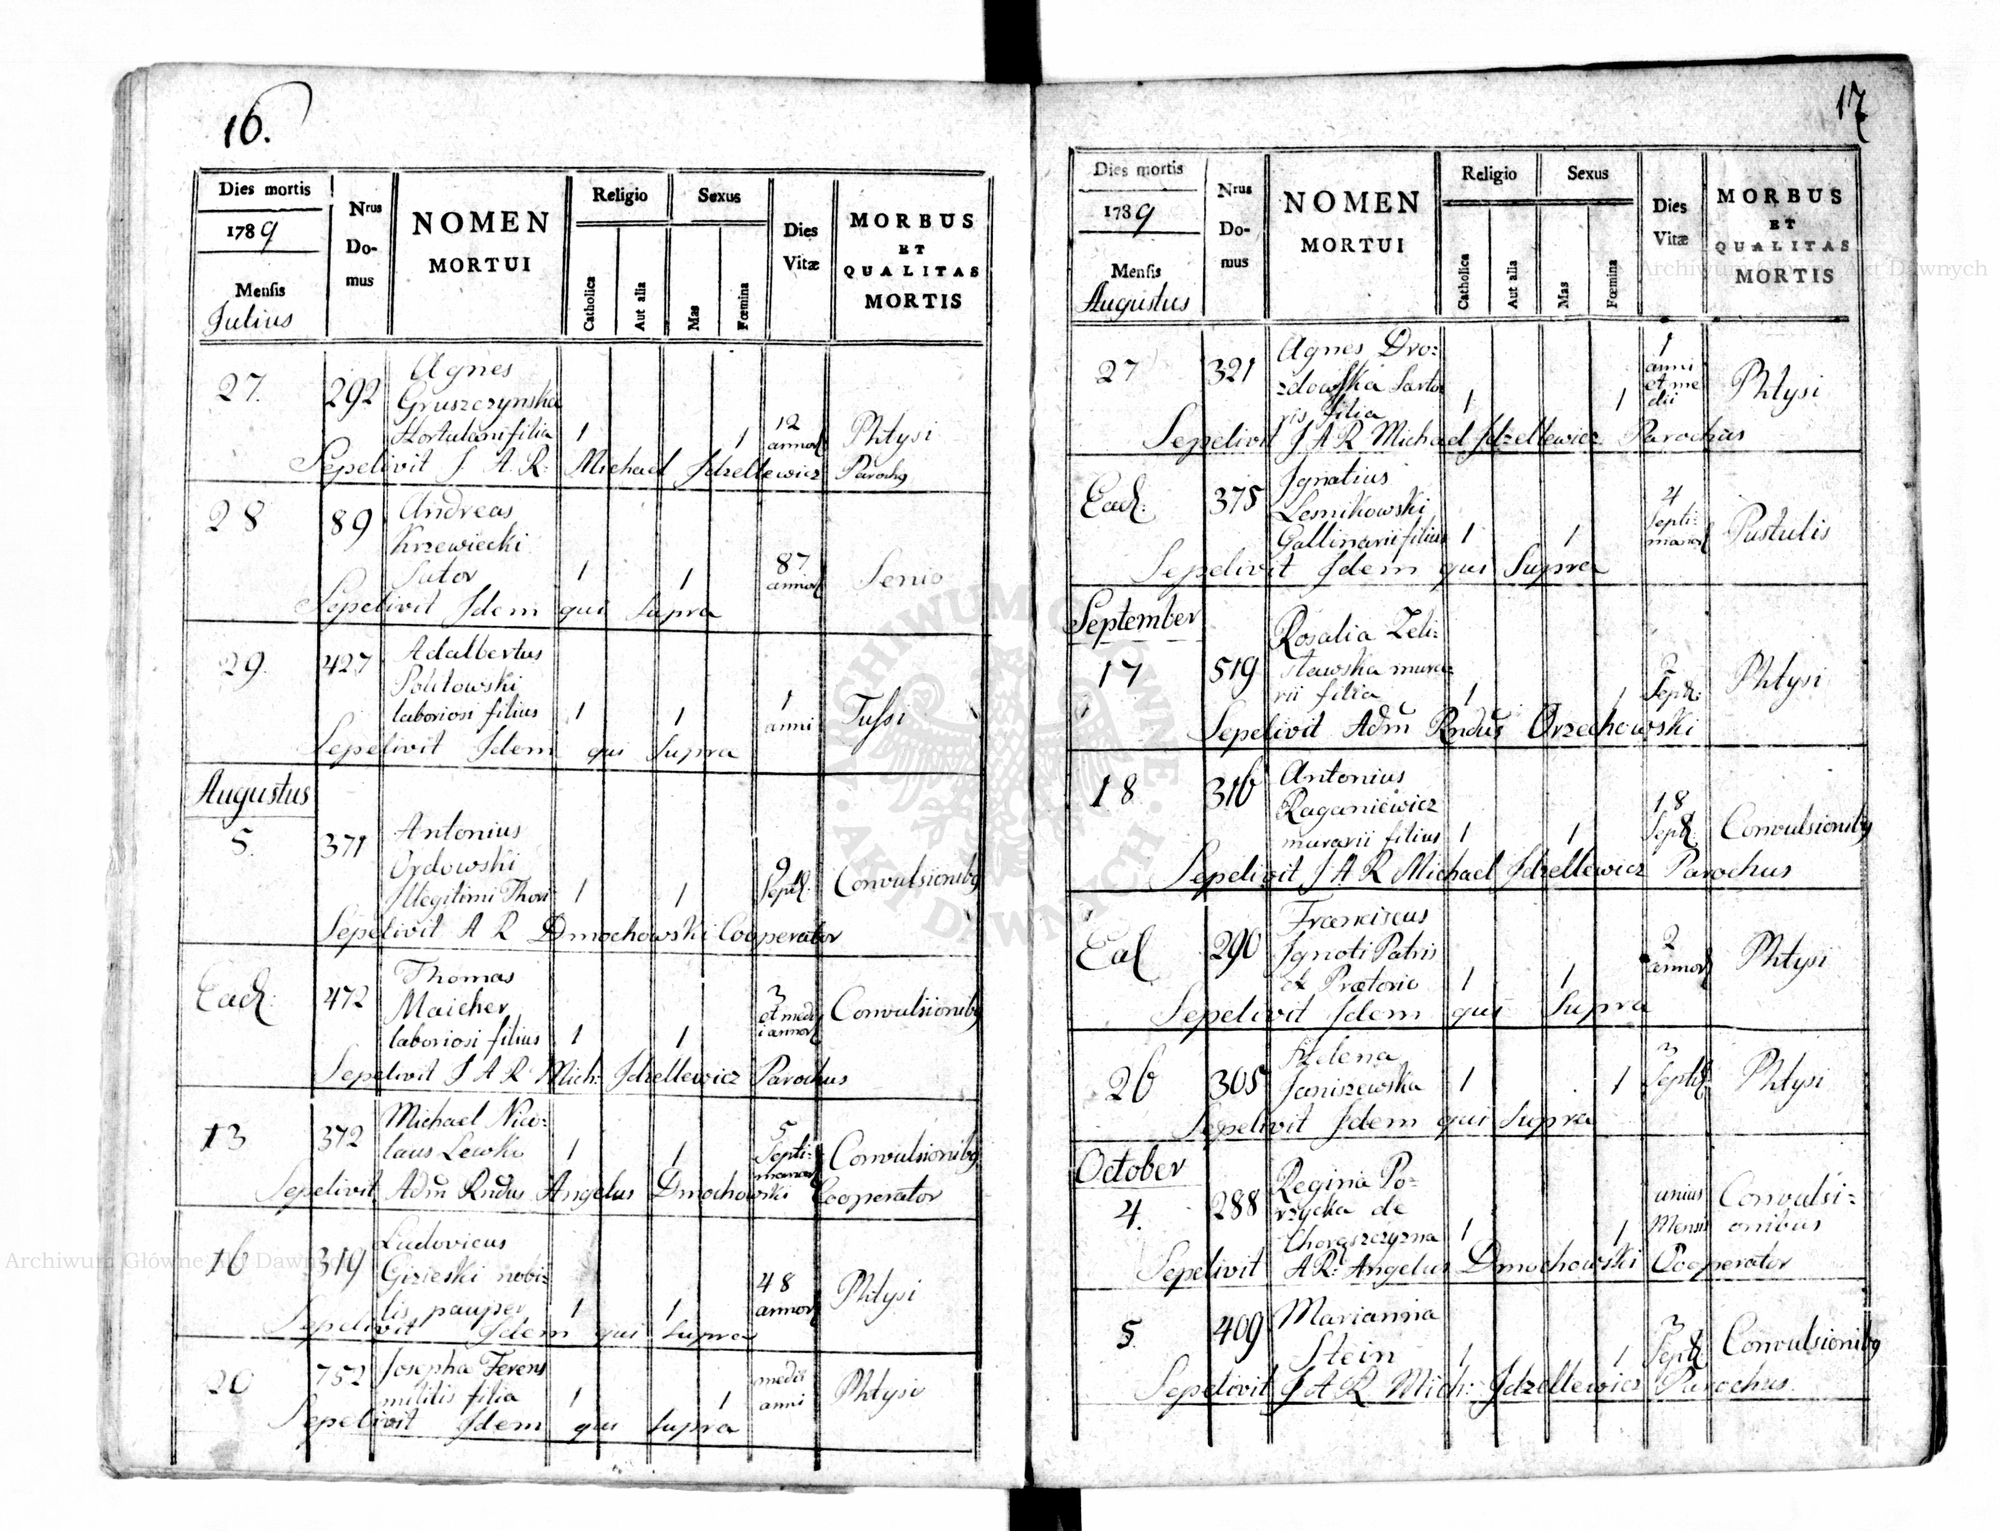 16.
Dies mortis
1789
Mensis
Julius
Nrus
Do-
mus
NOMEN
MORTUI
Religio
Catholica
Aut alia
Sexus
Mas
Fœmina
Dies
Vitæ
MORBUS
ET
QUALITAS
MORTIS
27. 292 Agnes
Gruszczynska
Hortulani filia 1 1 12 annor Phtysi
Sepelivit J. A. R. Michael Jdzellewicz Parochg
28 89 Andreas
Krzewiecki
Sutor 1 1 87 annor Senio
Sepelivit Jdem qui Supra
29. 427 Adalbertus
Politowski
laboriosi filius 1 1 1 anni Tussi
Sepelivit Jdem qui Supra
Augustus
5. 371 Antonius
Ordowski
Illegitimi Thori 1 1 9 Sept. Convulsionibg
Sepelivit A R Dmochowski Cooperator
Ead: 472 Thomas
Maicher
laboriosi filius 1 1 3 et medii annor Convulsionibg
Sepelivit J A R Mich: Jdzellewicz Parochus
13 372 Michael Nico-
laus Lewki 1 1 5 Septi-
manar Convulsionibg
Sepelivit Adm Rndus Angelus Dmochowski Cooperator
16 319 Ludovicus
Gizieski nobi-
lis pauper 1 1 48 annor Phtysi
Sepelivit Jdem qui Supra
20 752 Josepha Ferens
militis filia 1 1 medii
anni Phtysi
Sepelivit Jdem qui Supra
17
Dies mortis
1789
Mensis
Augustus
Nrus
Do-
mus
NOMEN
MORTUI
Religio
Catholica
Aut alia
Sexus
Mas
Fœmina
Dies
Vitæ
MORBUS
ET
QUALITAS
MORTIS
27 321 Agnes Dro-
zdowska Sarto
ris filia 1 1 1 anni
et me
dii Phtysi
Sepelivit J A R Michael Jdzellewicz Parochus
Ead: 375 Jgnatius
Lesnikowski
Gallinarii filius 1 1 4 Septi-
manar Pustulis
Sepelivit Jdem qui Supra
September
17 519 Rosalia Zeli-
sławska mura
rii filia 1 1 2 Sept: Phtysi
Sepelivit Adm Rndus Orzechowski
18 316 Antonius
Raganiewicz
murarii filius 1 1 18 Sept: Convulsionibg
Sepelivit J A R Michael Jdzellewicz Parochus
Ead 290 Franciscus
Jgnoti Patris
ex Prætorio 1 1 2 annor Phtysi
Sepelivit Jdem qui Supra
26 305 Helena
Janiszewska 1 1 3 Sept Phtysi
Sepelivit Jdem qui Supra
October
4. 288 Regina Po-
rzycka de
Choraszczyzna 1 1 unius
Mensis Convulsi-
onibus
Sepelivit A R: Angelus Dmochowski Cooperator
5. 409 Marianna
Stein 1 1 3 Sept Convulsionibg
Sepelivit J A R Mich: Jdzellewicz Parochus
Archiwum Główne Akt Dawnych
Archiwum Główne Akt Dawnych
ARCHIWUM GŁÓWNE · AKT DAWNYCH ·